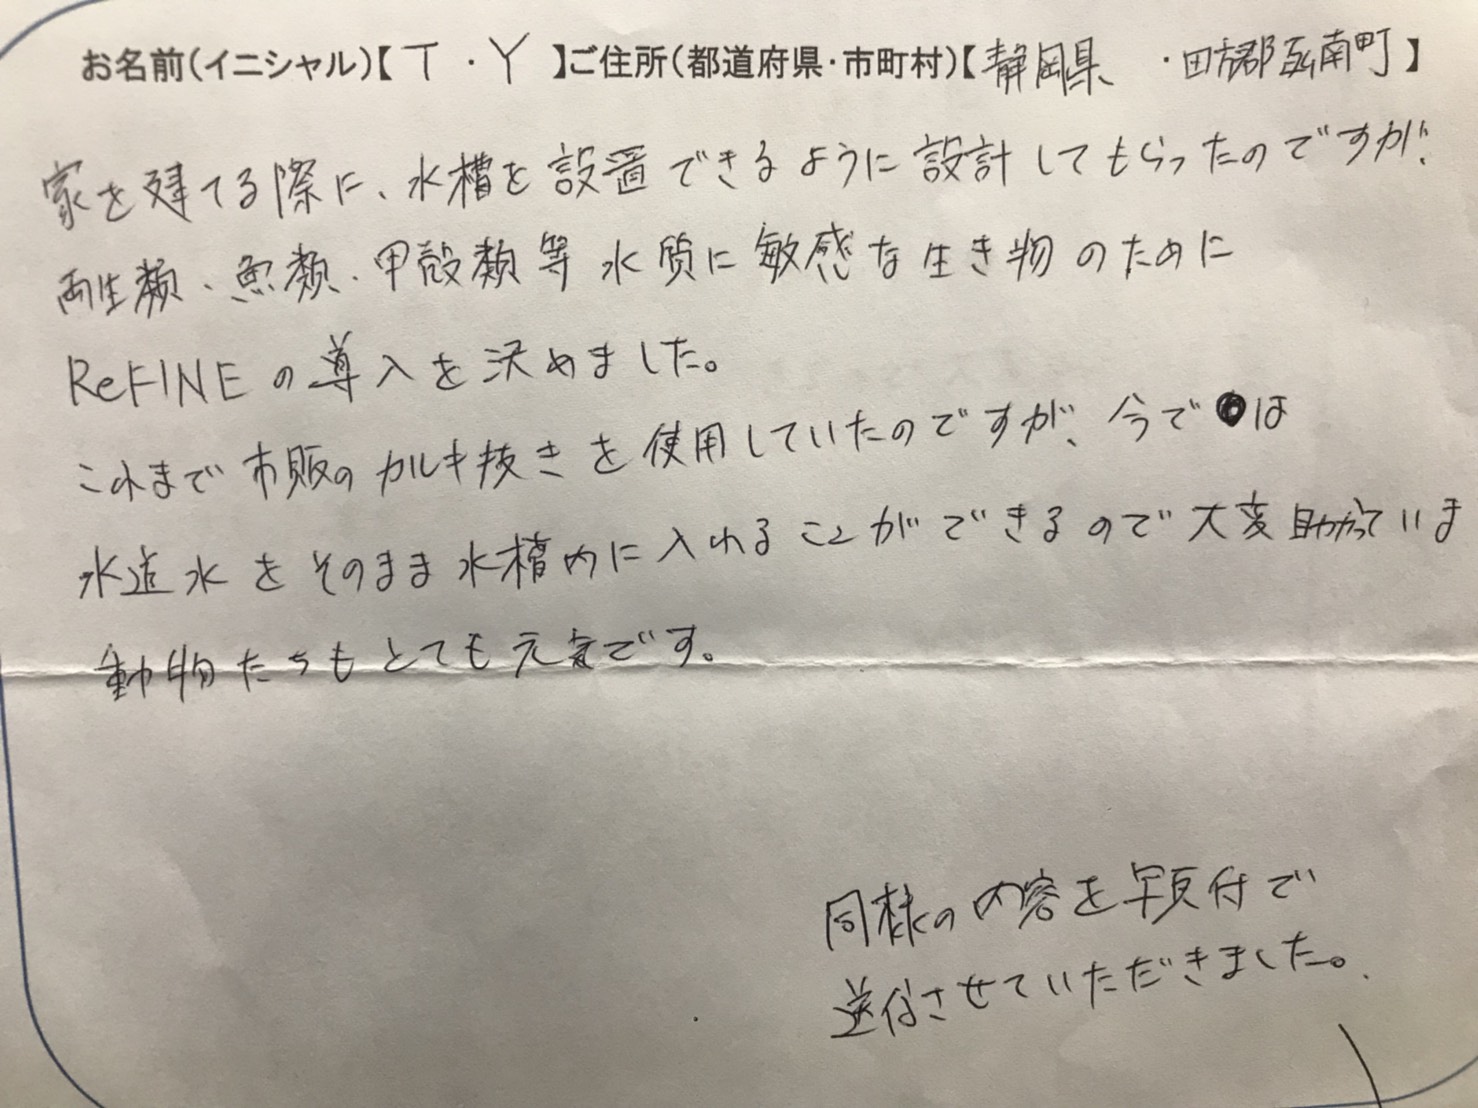 お名前(イニシャル)【T・Y】ご住所(都道府県・市町村)【静岡県・田方郡函南町】
家を建てる際に、水槽を設置できるように設計してもらったのですが、
両生類、魚類、甲殻類等水質に敏感な生き物のために
ReFINEの導入を決めました。
これまで市販のカルキ抜きを使用していたのですが、今では
水道水をそのまま水槽内に入れることができるので大変助かっていま
動物たちもとても元気です。
同様の内容を写真付で
送付させていただきました。